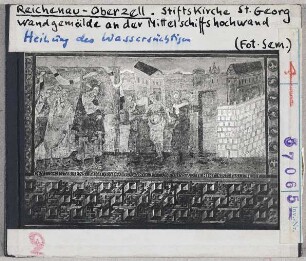 Reichenau-Oberzell. Stiftskirche St. Georg
Wandgemälde an der Mittelschiffshochwand
Heilung des Wassersüchtigen
(Fot. Sem.)
67065